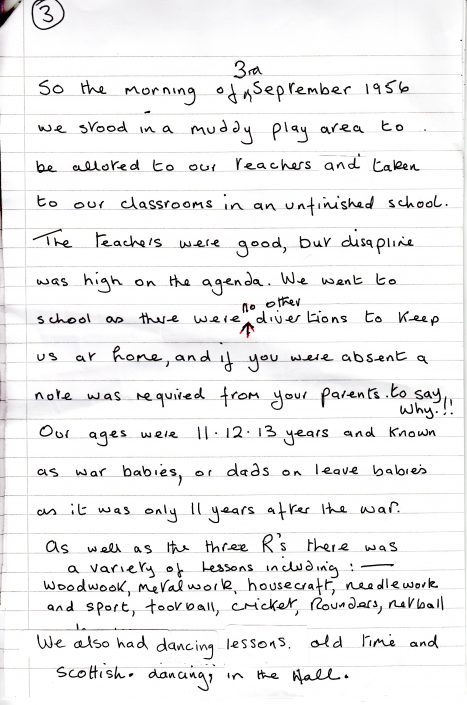 3
So the morning of 3rd September 1956
we stood in a muddy play area to
be alloted to our teachers and taken
to our classrooms in an unfinished school.
The teachers were good, but disapline
was high on the agenda. We went to
school as there were no other diversions to keep
us at home, and if you were absent a
note was required from your parents. to say
why.!!
Our ages were 11.12.13 years and known
as war babies, or dads on leave babies
as it was only 11 years after the war.
As well as the three R's there was
a variety of lessons including : —
woodwook, metalwork, housecraft, needlework
and sport, football, cricket, Rounders, netball
We also had dancing lessons. old time and
Scottish. dancing, in the Hall.